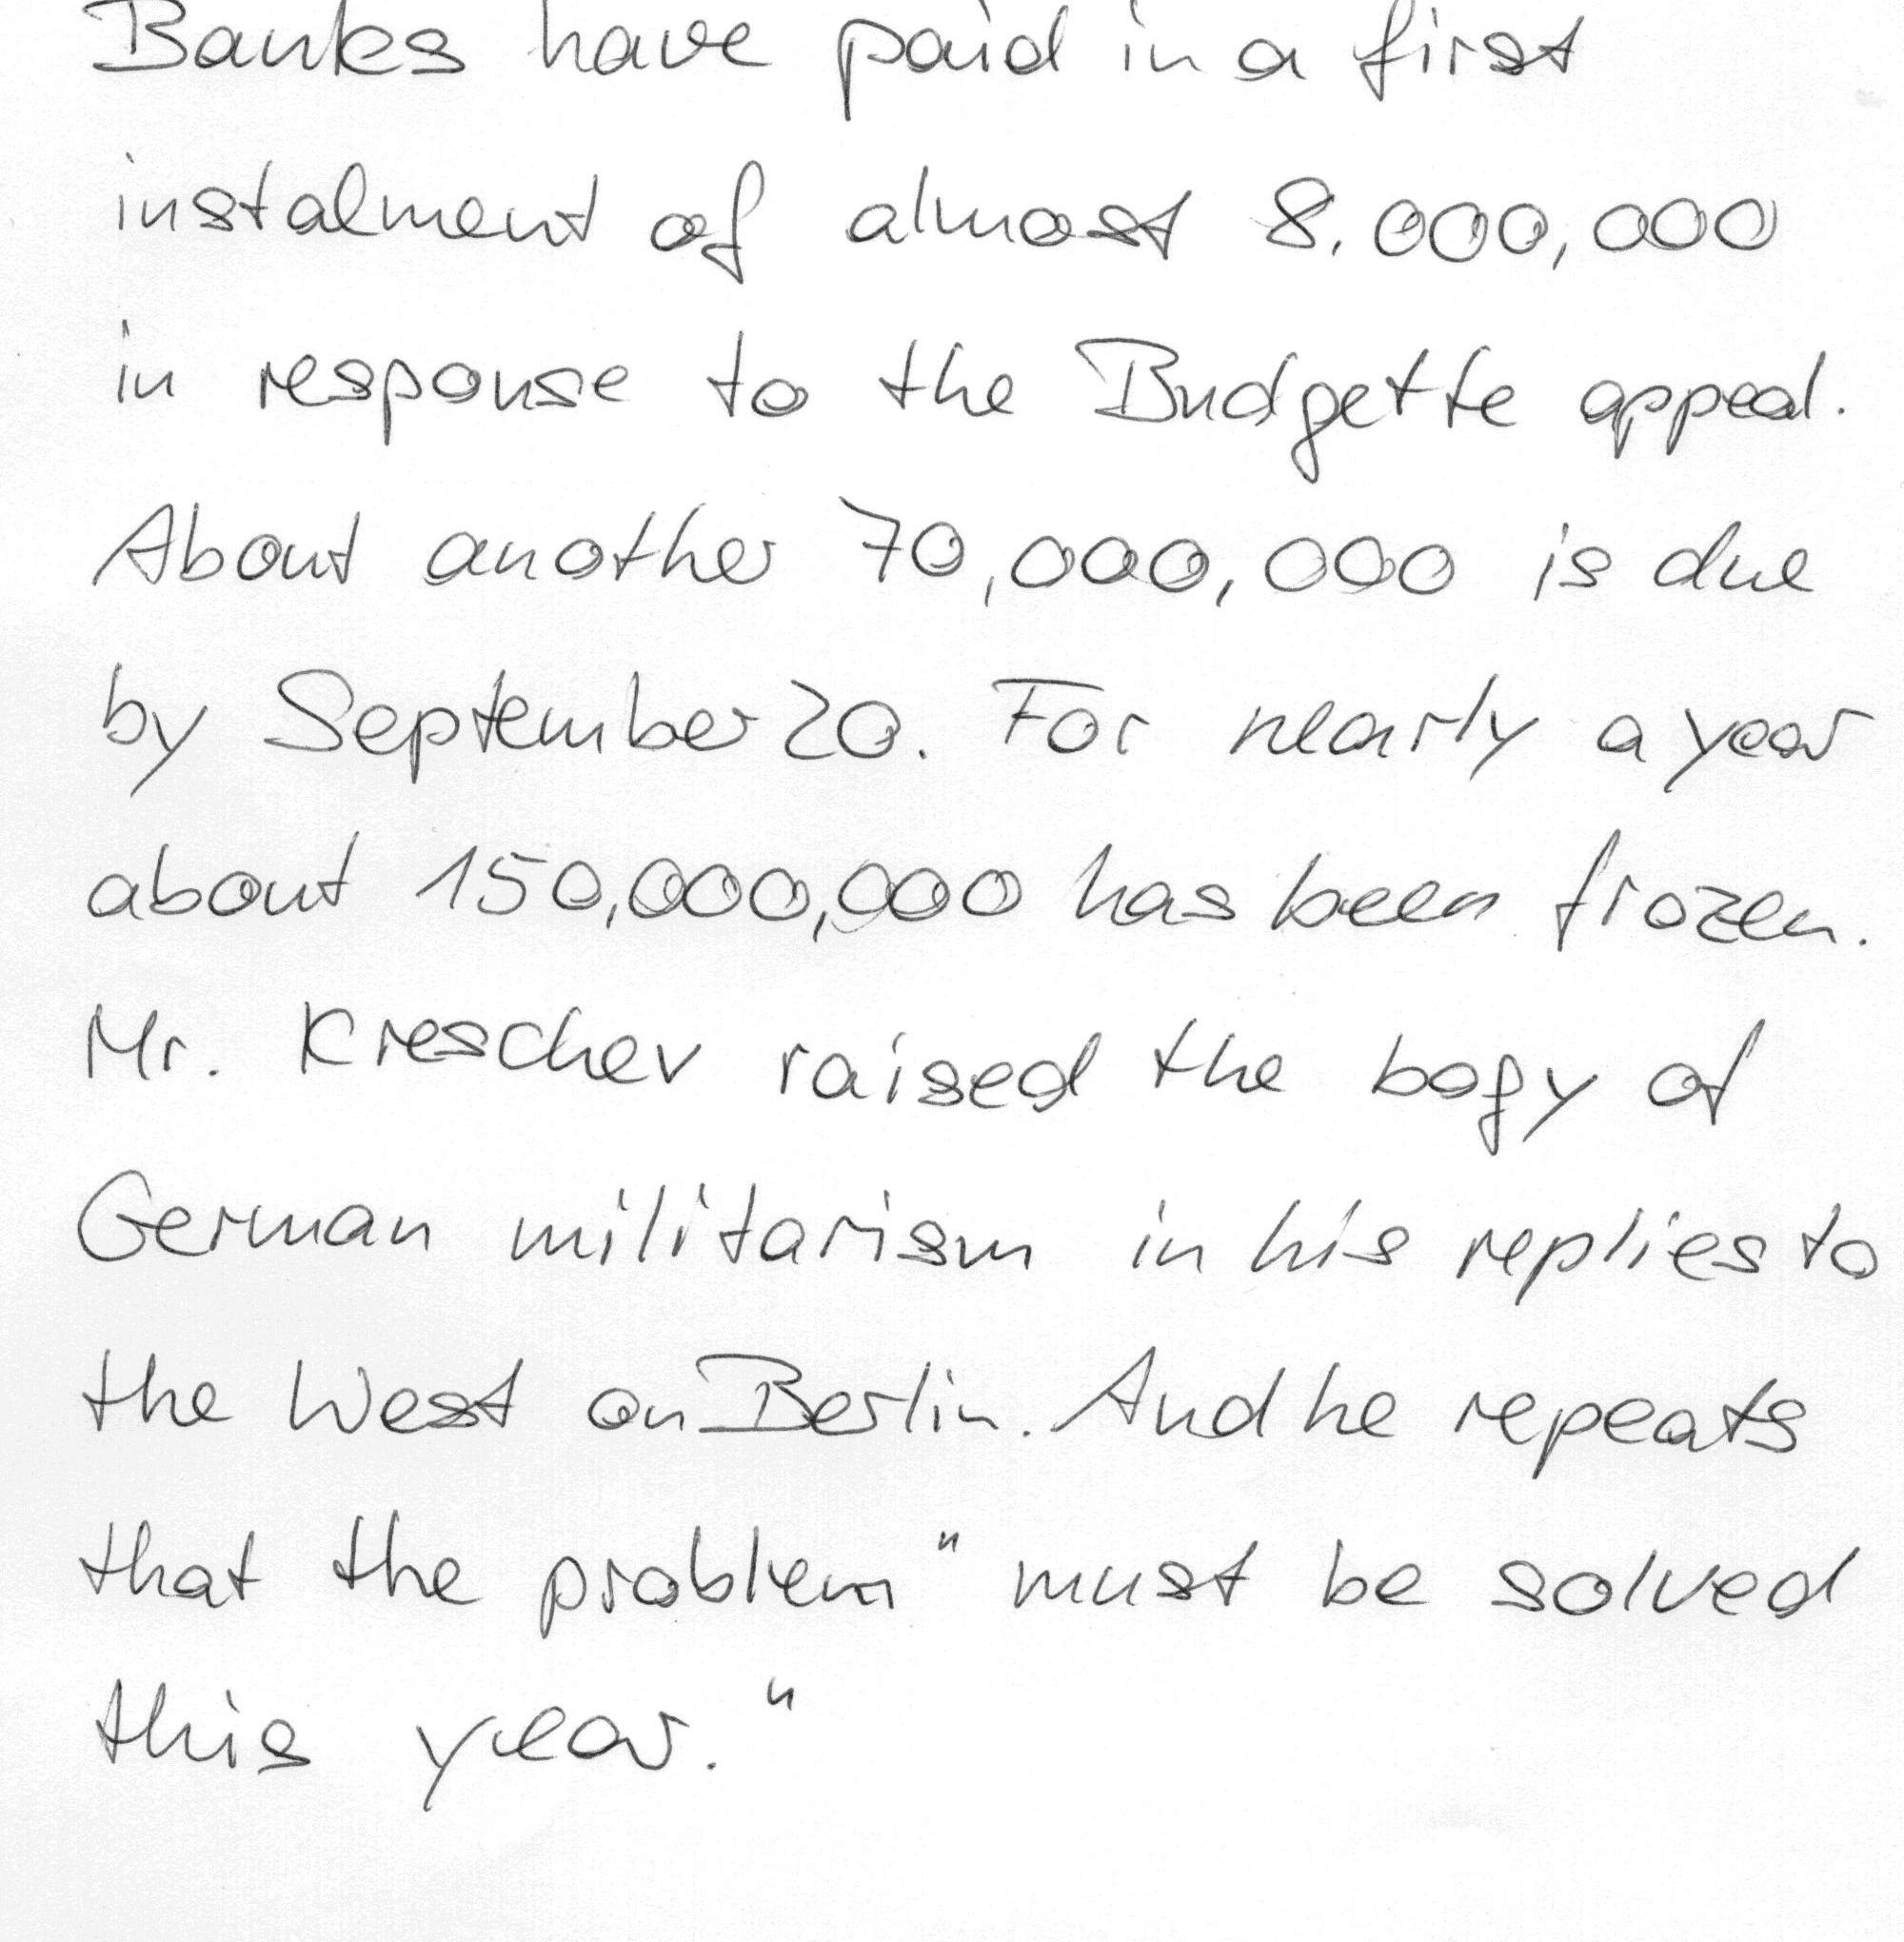 Banks have paid in a first
instalment of almost 8.000,000
in response to the Budgette appeal.
About another 70,000,000 is due
by September 20. For nearly a year
about 150,000,000 has been frozen.
Mr. Kreschev raised the bogy of
German militarism in his replies to
the West on Berlin. And he repeats
that the problem " must be solved
this year."